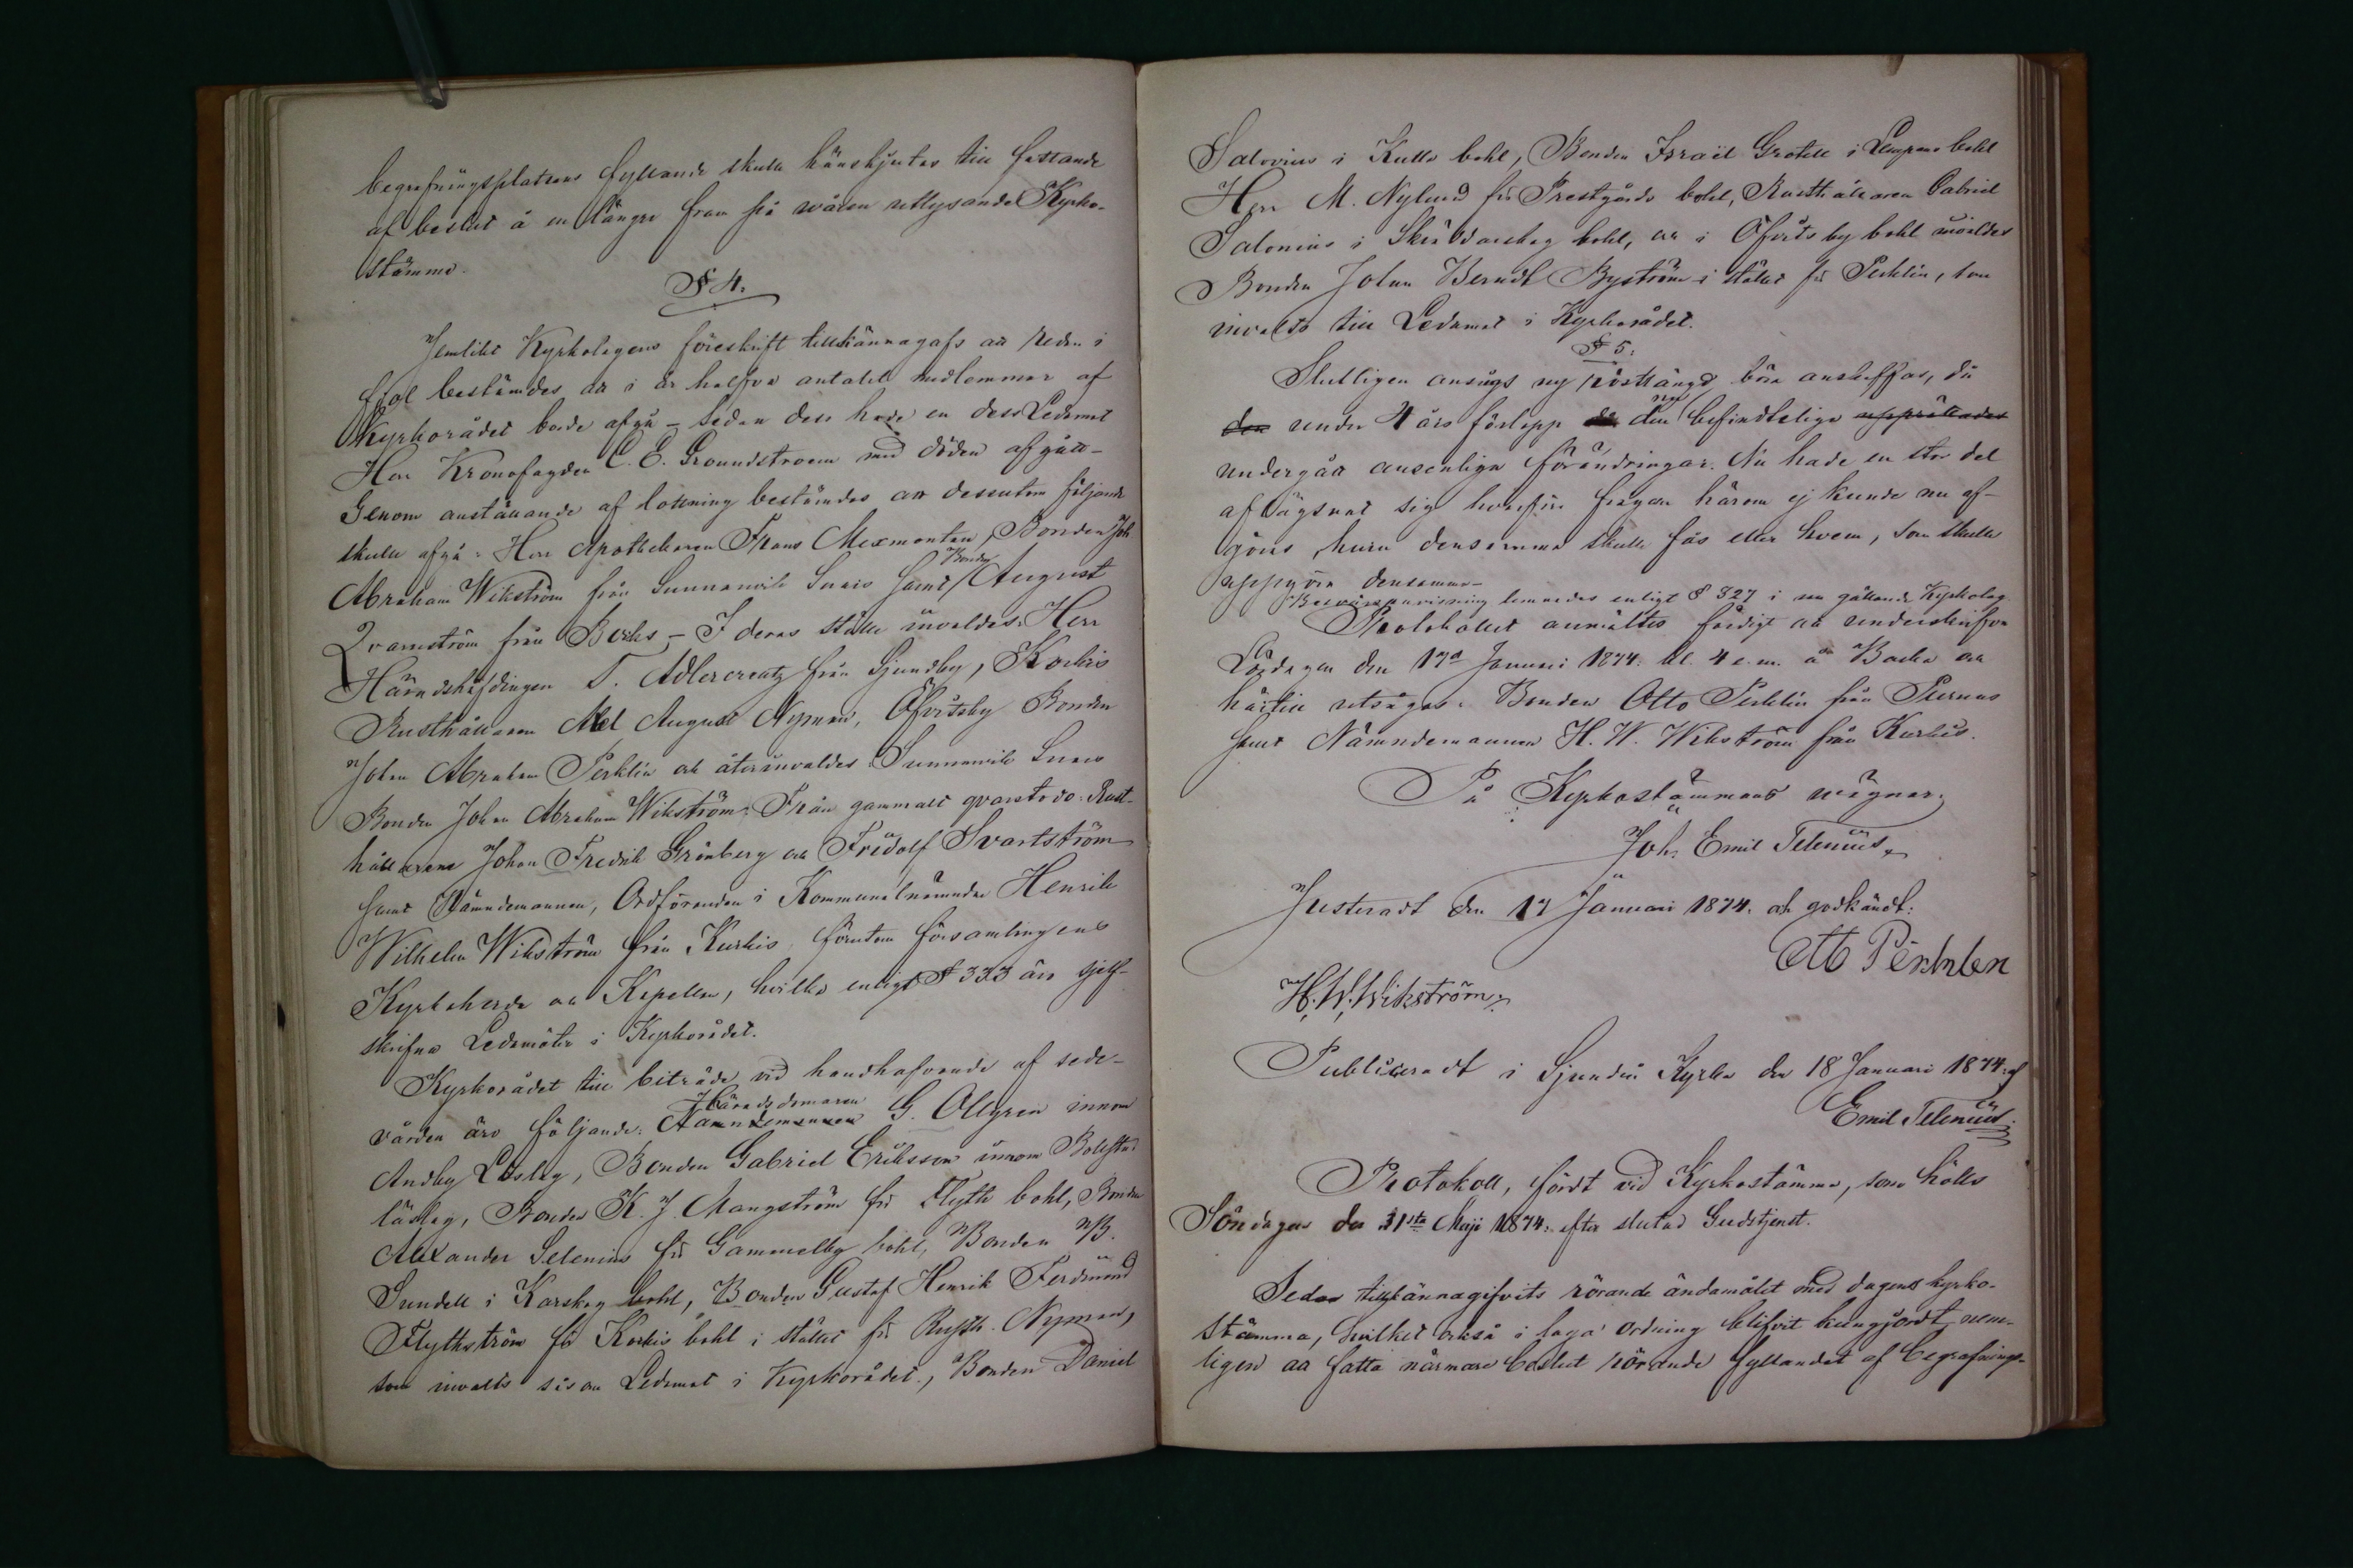 begrafningsplatsens fyllande skulle hänskjutas till fattande
af beslut å en längre fram på wåren utlysande Kyrko-
stämma.
§ 4.
Jemlikt Kyrkolagens föreskrift tillkännagafs att redan i
fjol bestämdes att i år halfva antalet medlemmar af
Kyrkorådet borde afgå – sedan dess hade en dess Ledamot
Herr Kronofogden C. E. Groundstroem med döden afgått –
Genom anställande af lottning bestämdes att dessutom följande
skulle afgå: Herr Apothekaren Frans Mexmontan, Bonden Joh.
Abraham Wikström från Sunnanvik Sunis samt Bonden August
Qvarnström från Böhls – I deras ställe invaldes: Herr
Häradshöfdingen T. Adlercreutz från Sjundby, Korkis
Rusthållaren Abel August Nyman, Öfvitsby Bonden
Johan Abraham Perklén och återinvaldes: Sunnanvik Sunis
Bonden Johan Abraham Wikström. Från gammalt qvarstodo: Rust-
hållarene Johan Fredrik Grönberg och Fridolf Svartström
samt Nämndemannen, Ordföranden i Kommunalnämnden Henrik
Wilhelm Wikström från Kurkis, förutom församlingens
Kyrkoherde och Kapellan, hvilka enligt § 333 äro sjelf-
skrifna Ledamöter i Kyrkorådet.
Kyrkorådet till biträde vid handhafvande af sede-
vården äro följande: Häradsdomaren Nämndemannen G. Ollgren innom
Andby Läslag, Bonden Gabriel Eriksson innom Bollstad
läslag, Bonden K. J. Mangström för Flyth bohl, Bonden
Alexander Selenius för Gammelby bohl, Bonden B.
Sundell i Karskog bohl, Bonden Gustaf Henrik Ferdinand
Flythström för Korkis bohl i stället för Rusth. Nyman,
som invalts såsom Ledamot i Kyrkorådet, Bonden Daniel
Salovius i Kulla bohl, Bonden Israël Grotell i Lempans bohl
Herr M. Nylund för Prestgårds bohl, Rusthållaren Gabriel
Salonius i Sköldvarskog bohl, och i Öfvitsby bohl invaldes
Bonden Johan Berndt Byström i stället för Perklén, som
invalts till Ledamot i Kyrkorådet.
§ 5.
Slutligen ansågs ny röstlängd böra anskaffas, då
den under 4 års förlopp den nu befindtliga upprättades
undergått ansenliga förändringar. Nu hade en stor del
aflägsnat sig hvarför frågan härom ej kunde nu af-
göras, huru densamma skulle fås eller hvem, som skulle
uppgöra densamma –
Besvärsanvisning lemnades enligt § 327 i nu gällande Kyrkolag.
Protokollet anmältes färdigt att underskrifvas
Lördagen den 17de Januari 1874. kl. 4 e.m. å Backa och
härtill utsågos: Bonden Otto Perklén från Purnus
samt Nämndemannen H. W. Wikström från Kurkis.
På Kyrkostämmans wägnar:
Joh. Emil Telenius.
Justeradt den 17 Januari 1874. och godkändt:
Otto Perklen
H. W. Wikström.
Publiceradt i Sjundeå Kyrka den 18 Januari 1874. af
Emil Telenius.
Protokoll, fördt vid Kyrkostämma, som hölls
Söndagen den 31sta Maji 1874. efter slutad Gudstjenst.
Sedan tillkännagifvits rörande ändamålet med dagens kyrko-
stämma, hvilket också i laga ordning blifvit kungjordt, nem-
ligen att fatta närmare beslut rörande fyllandet af begrafnings-